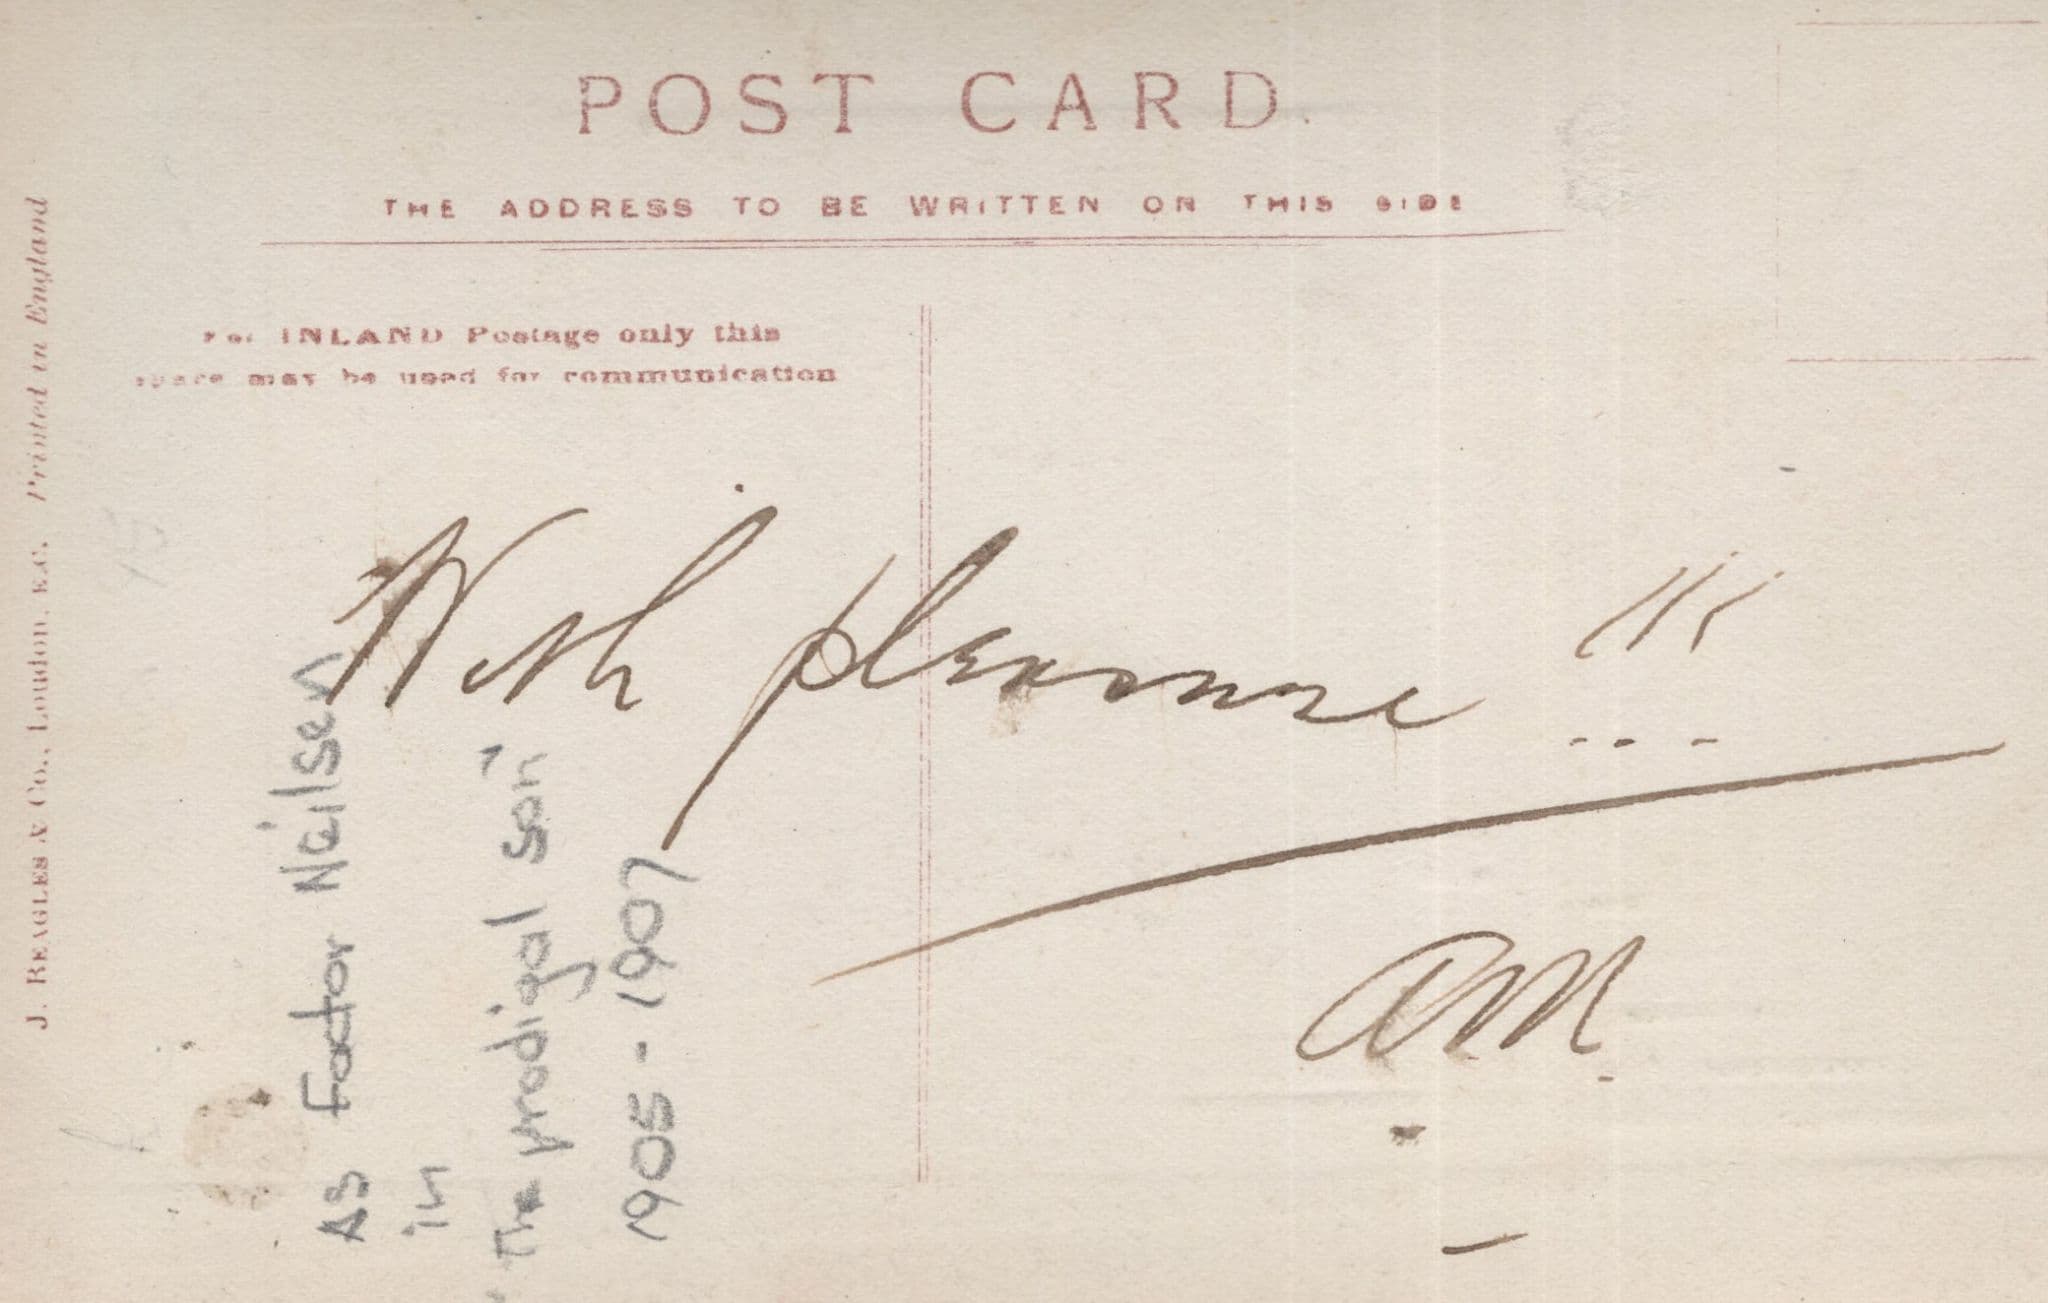 POST CARD.
THE ADDRESS TO BE WRITTEN ON THIS SIDE
For INLAND Postage only this
space may be used for communication
J. BEAGLES & Co., London, E.C. Printed in England
With pleasure !!!
AM
As Factor Neilsen
in
The prodigal son
1905-1907